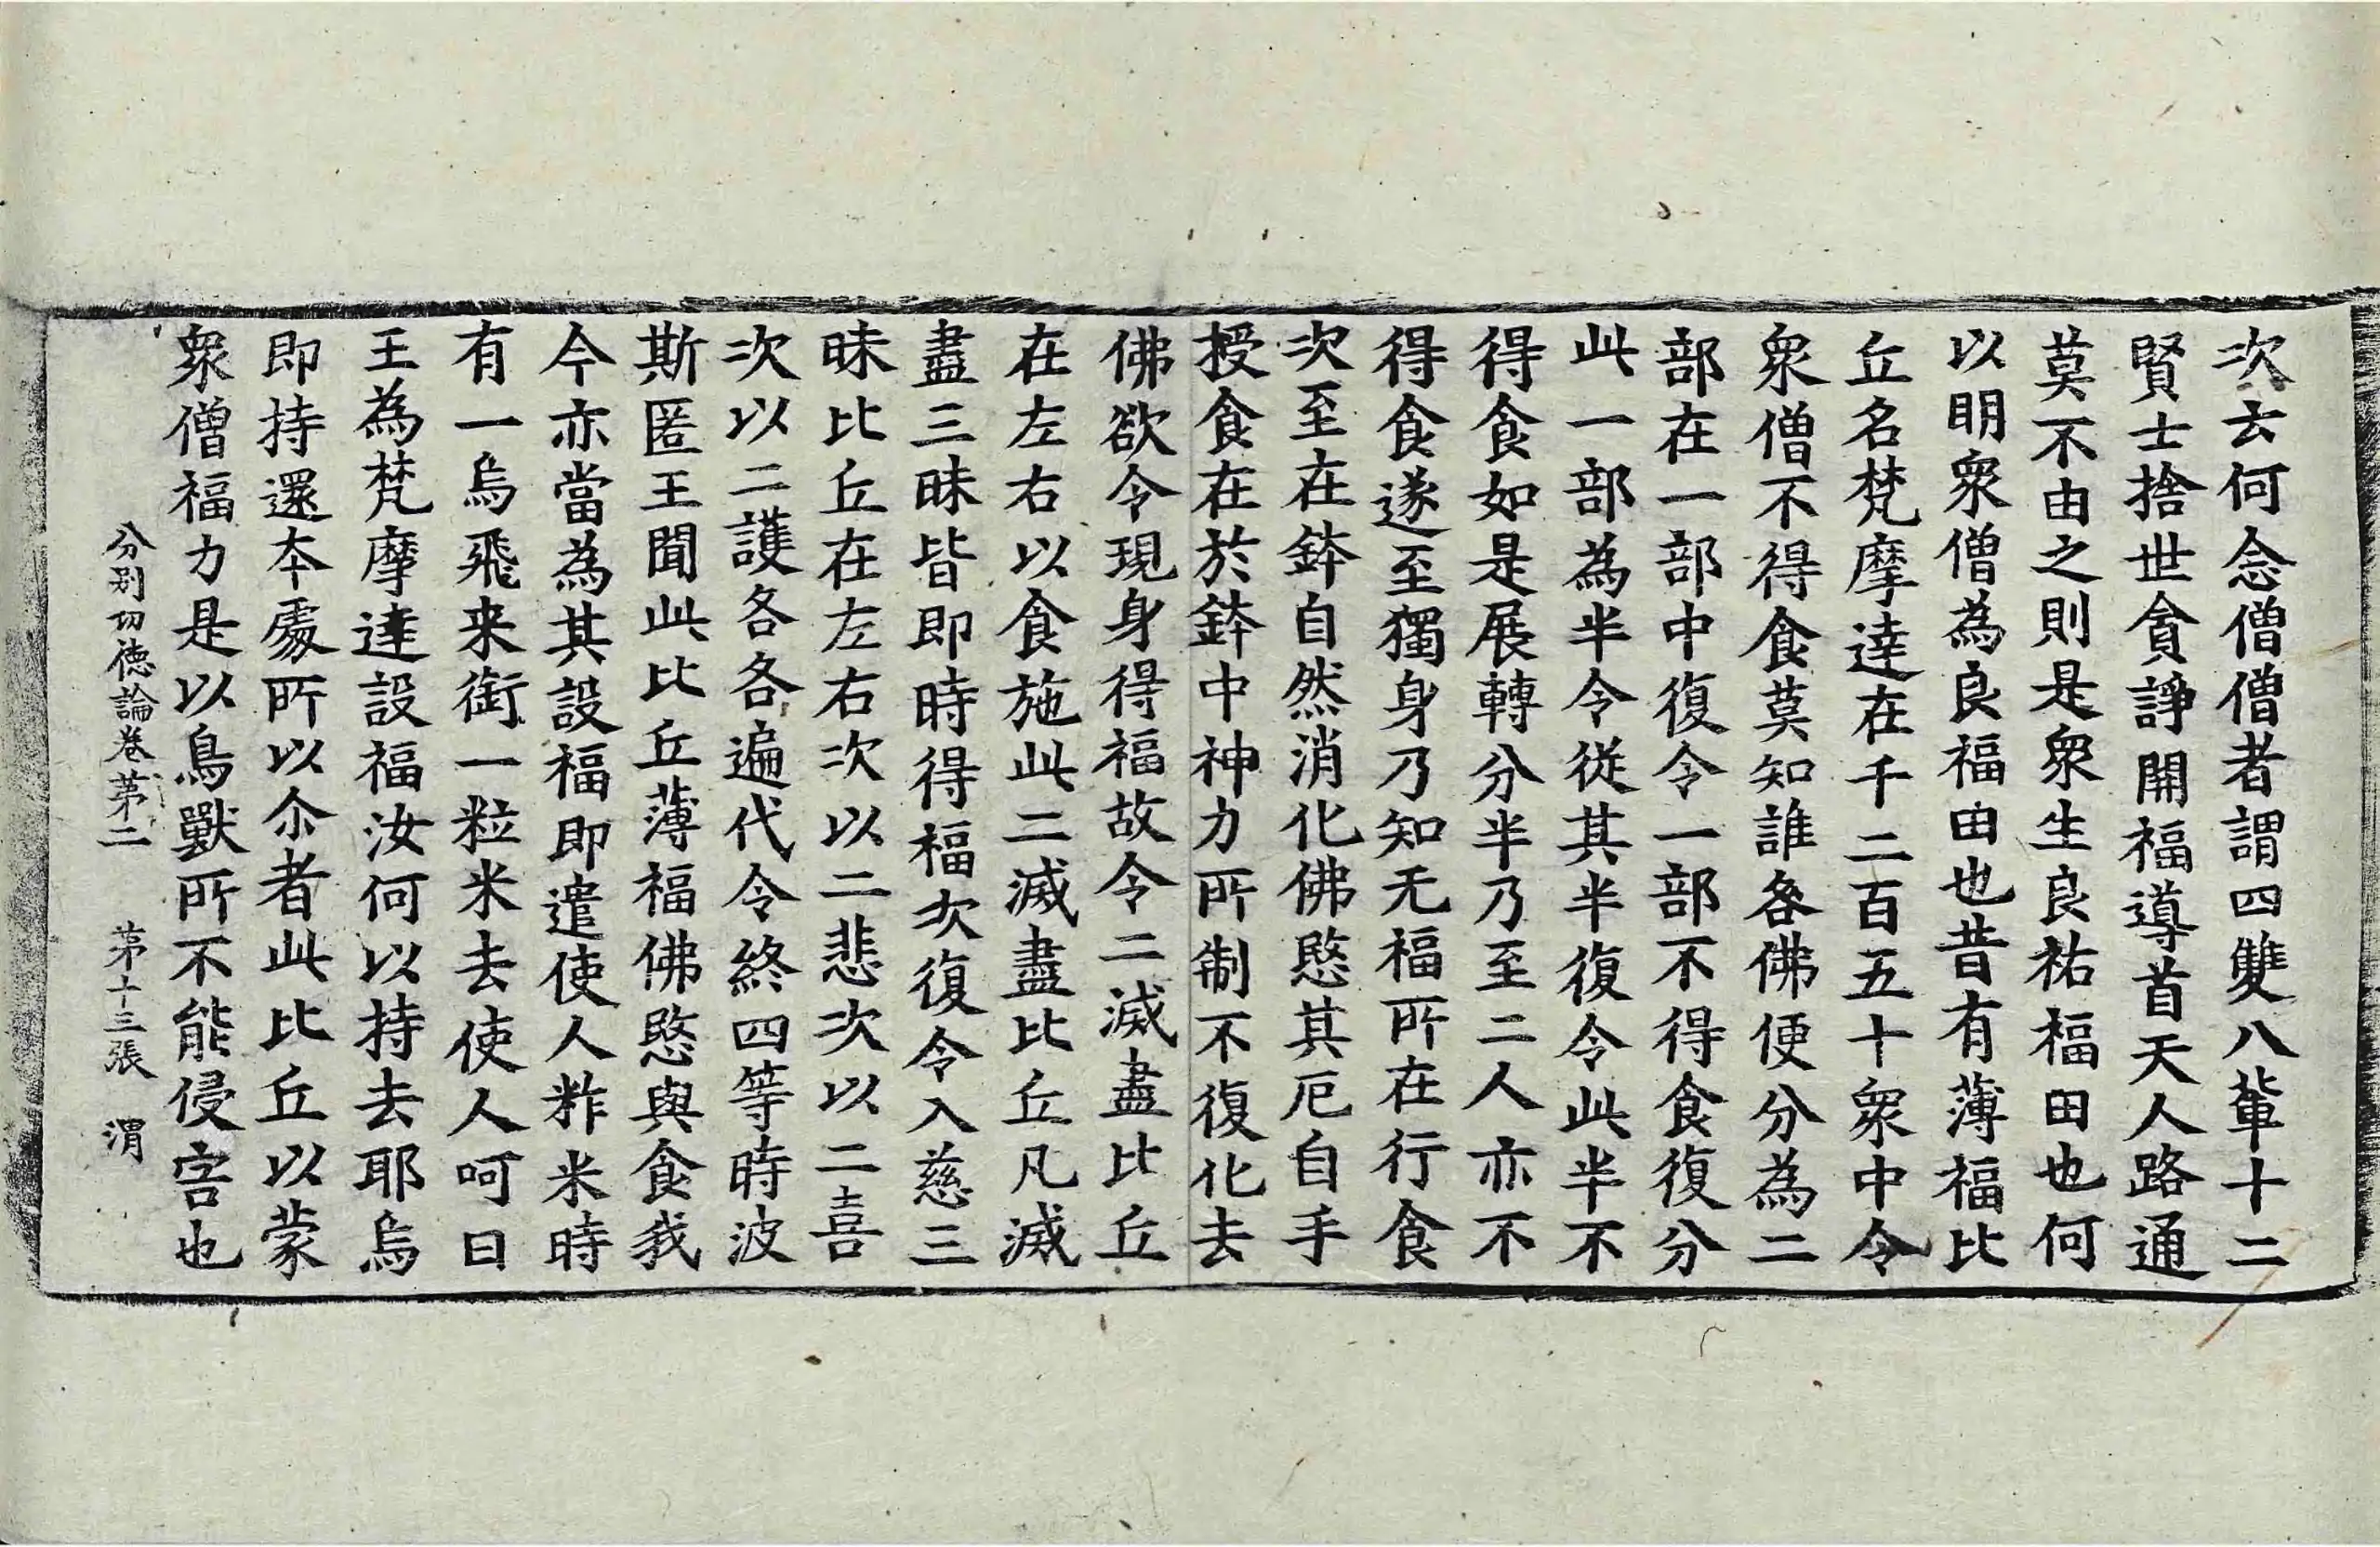 次去何念僧僧者謂四雙八輩十二
賢士捨世貪諍開福導首天人路通
莫不由之則是衆生良祐福田也何
以明衆僧為良福田也昔有薄福比
丘名梵摩達在千二百五十衆中令
衆僧不得食莫知誰咎佛便分為二
部在一部中復令一部不得食復分
此一部為半令從其半復令此半不
得食如是展轉分半乃至二人亦不
得食遂至獨身乃知无福所在行食
次至在鉢自然消化佛愍其厄自手
授食在於鉢中神力所制不復化去
佛欲令現身得福故令二滅盡比丘
在左右以食施此二滅盡比丘凡滅
盡三昧皆即時得福次復令入慈三
昧比丘在左右次以二悲次以二喜
次以二護各各遍代令終四等時波
斯匿王聞此比丘薄福佛愍與食我
今亦當為其設福即遣使人粼米時
有一烏飛来銜一粒米去使人呵曰
王為梵摩達設福汝何以持去耶烏
即持還本處所以尒者此比丘以蒙
衆僧福力是以鳥獸所不能侵害也
分别功德論卷苐二 苐十三張 渭